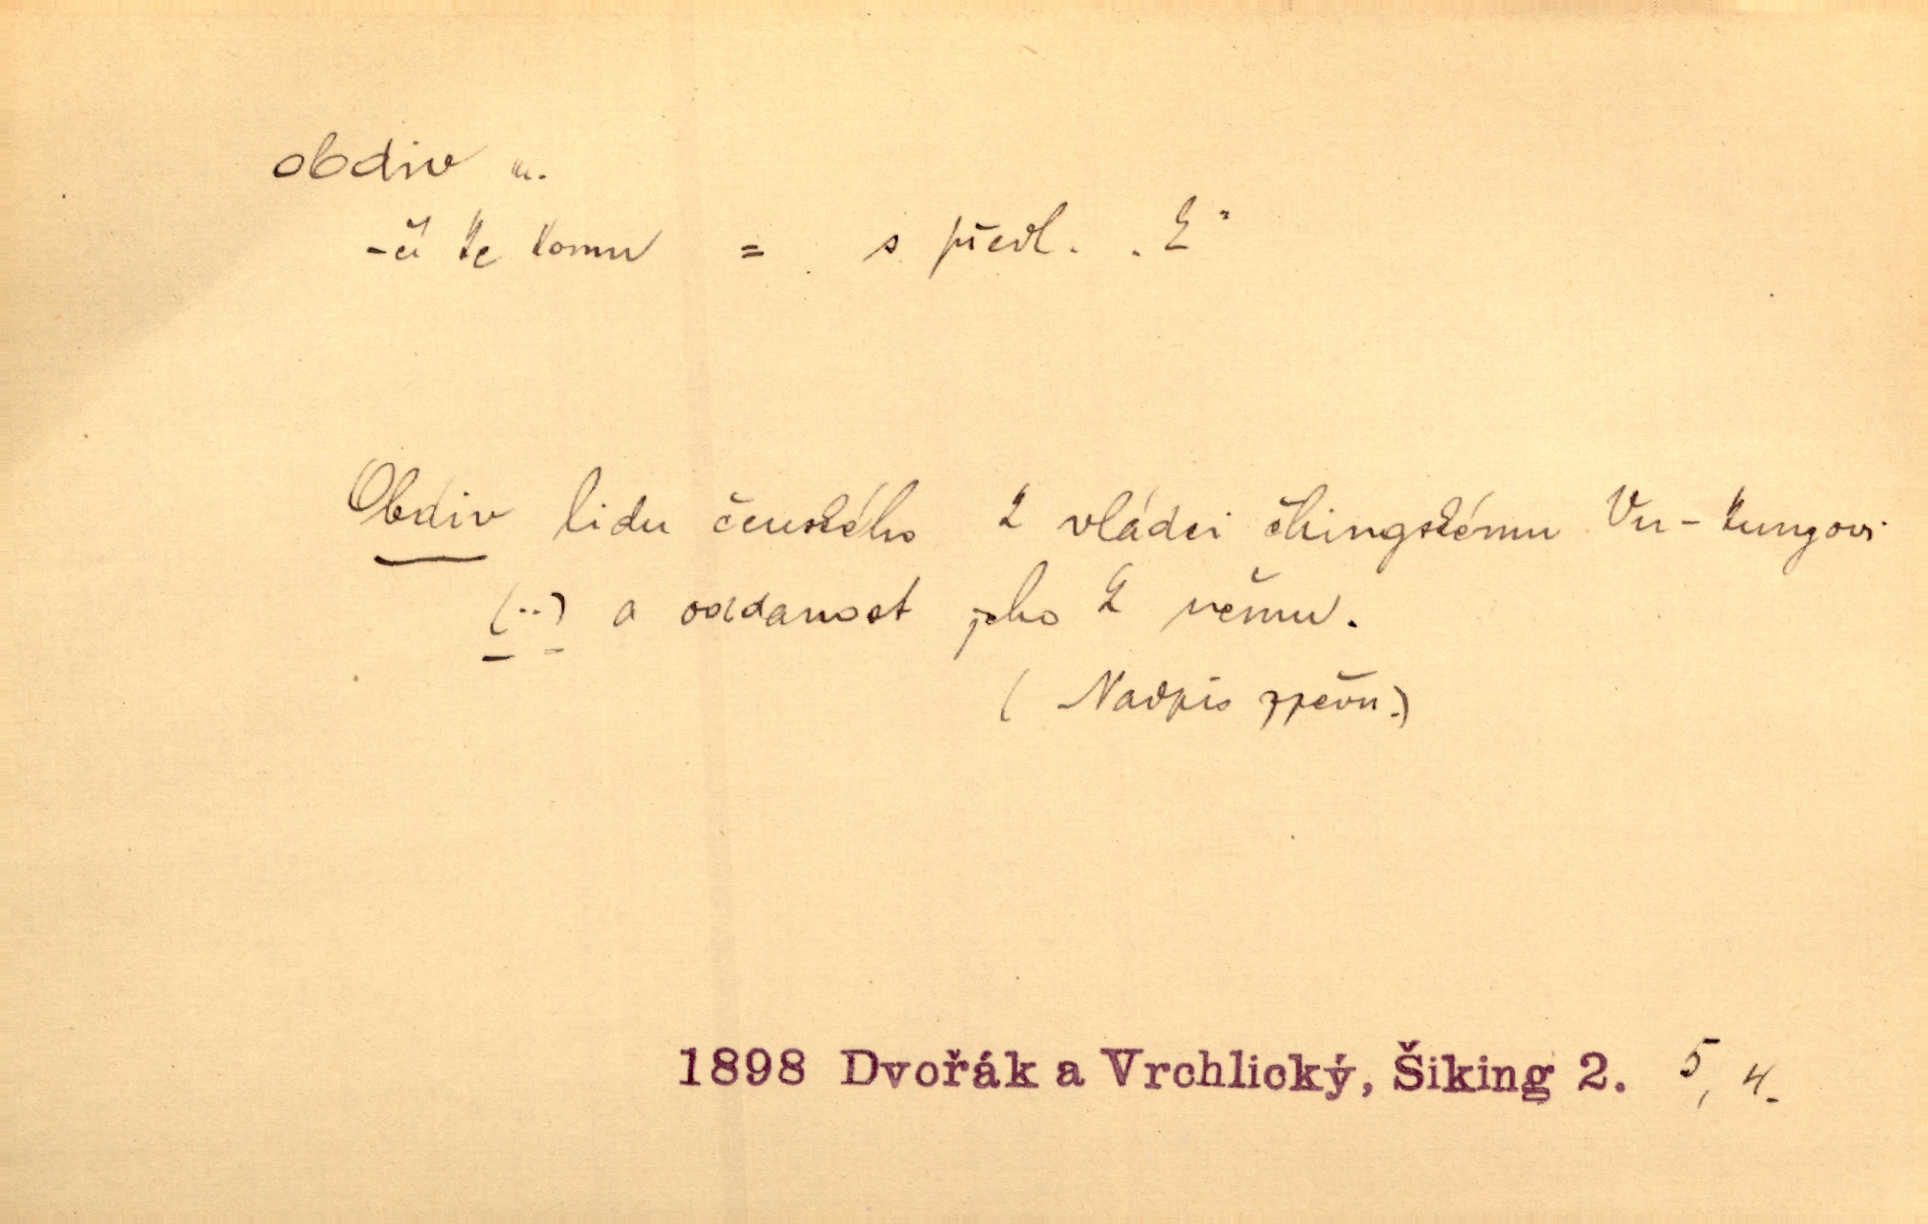 obdiv m.
-čí ke komu = s předl. „k"
Obdiv lidu čenského k vládci čhingskému Vu-kungovi
(..) a oddanost jeho k němu.
(Nadpis zpěvu.)
1898 Dvořák a Vrchlický, Šiking 2. 5, 4.